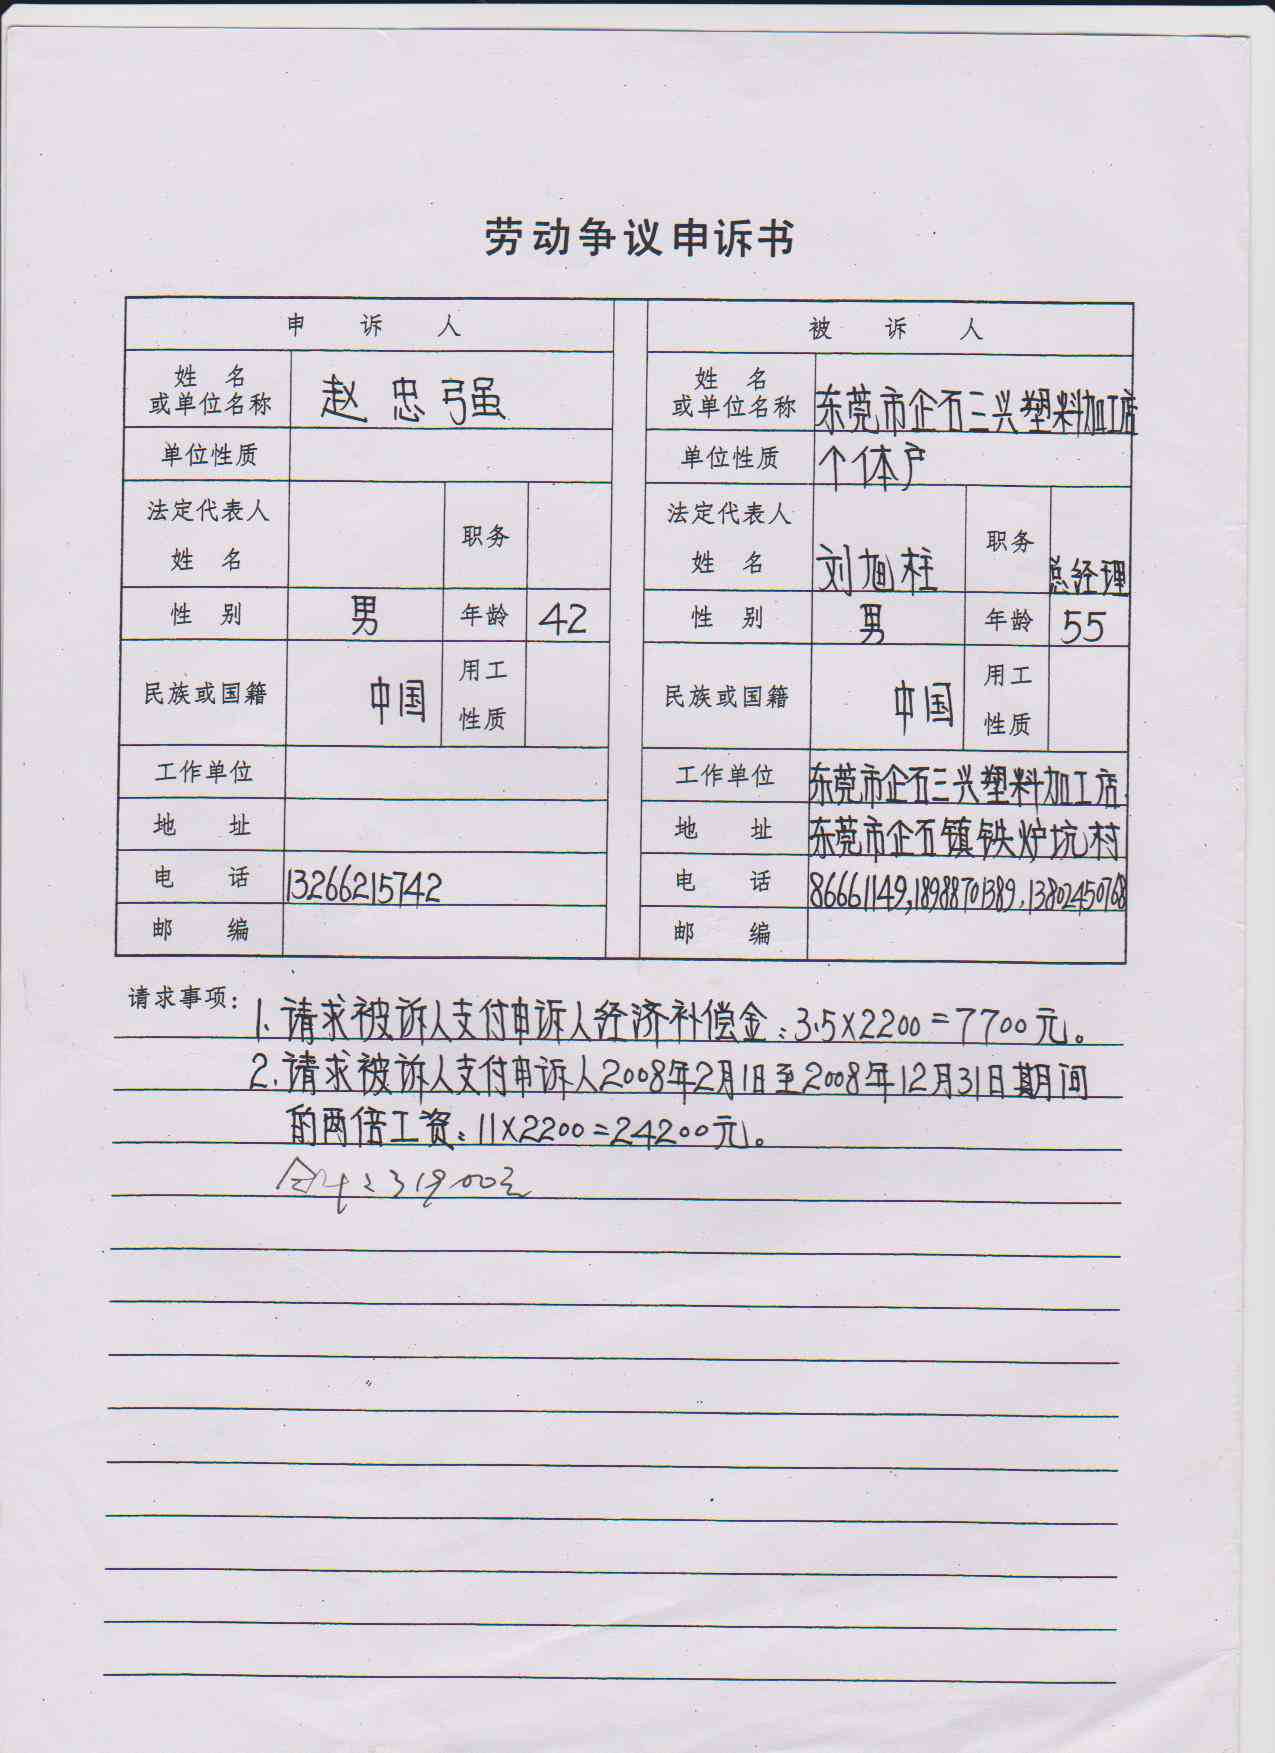 劳动争议申诉书
申诉人 被诉人
姓名或单位名称 赵忠强 姓名或单位名称 东莞市企石三兴塑料加工店
单位性质 单位性质 个体户
法定代表人姓名 职务 法定代表人姓名 刘旭柱 职务 总经理
性别 男 年龄 42 性别 男 年龄 55
民族或国籍 中国 用工性质 民族或国籍 中国 用工性质
工作单位 工作单位 东莞市企石三兴塑料加工店.
地址 地址 东莞市企石镇铁炉坑村
电话 13266215742 电话 86661149,18988701389,13802450768
邮编 邮编
请求事项: 1.请求被诉人支付申诉人经济补偿金:3.5×2200=7700元。
2.请求被诉人支付申诉人2008年2月1日至2008年12月31日期间
的两倍工资:11×2200=24200元。
合计:31900元